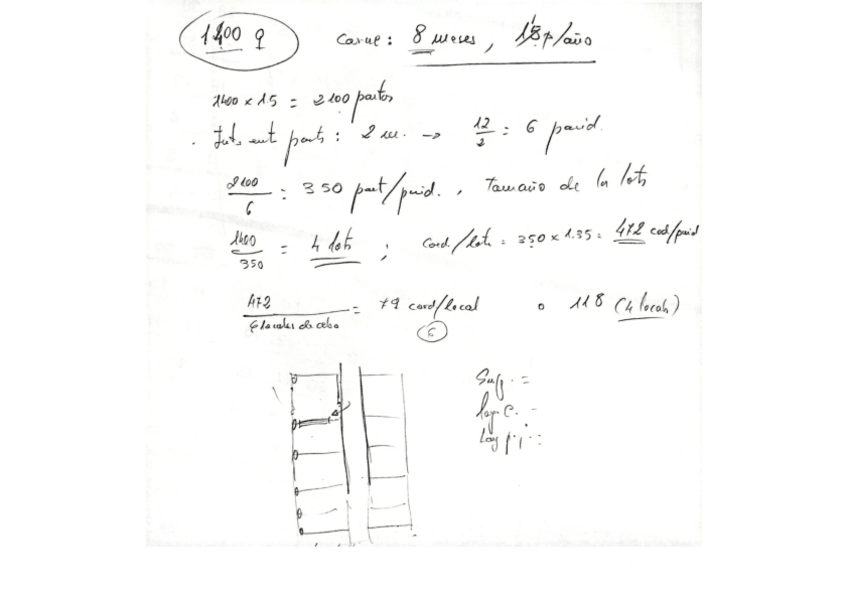 1400 ♀ carne: 8 meses, 1'5 p/año
1400 x 1.5 = 2100 partos
. Int. ent parts: 2 m. → 12/2 = 6 parid.
2100/6 = 350 part/parid. , Tamaño de los lots
1400/350 = 4 lots ; Cord./lote = 350 x 1.35 = 472 cord/parid
472/6 locales de cebo = 79 cord/local o 118 (4 locals)
6
Sup. =